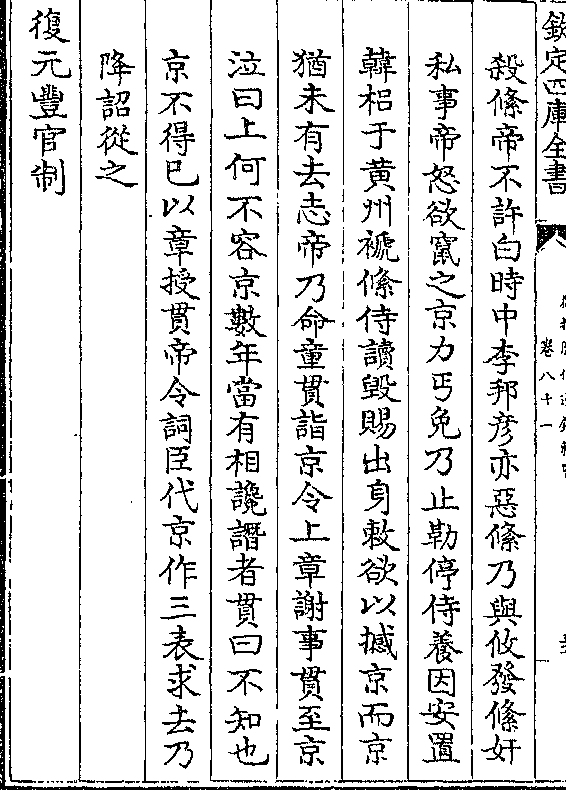 欽定四庫全書
卷八十一
殺絛帝不許白時中李邦彥亦惡絛乃與攸發絛奸
私事帝怒欲竄之京力丐免乃止勒停侍養因安置
韓梠于黄州褫絛侍讀毀賜出身敕欲以撼京而京
猶未有去志帝乃命童貫詣京令上章謝事貫至京
泣曰上何不容京數年當有相讒譖者貫曰不知也
京不得已以章授貫帝令詞臣代京作三表求去乃
降詔從之
復元豐官制